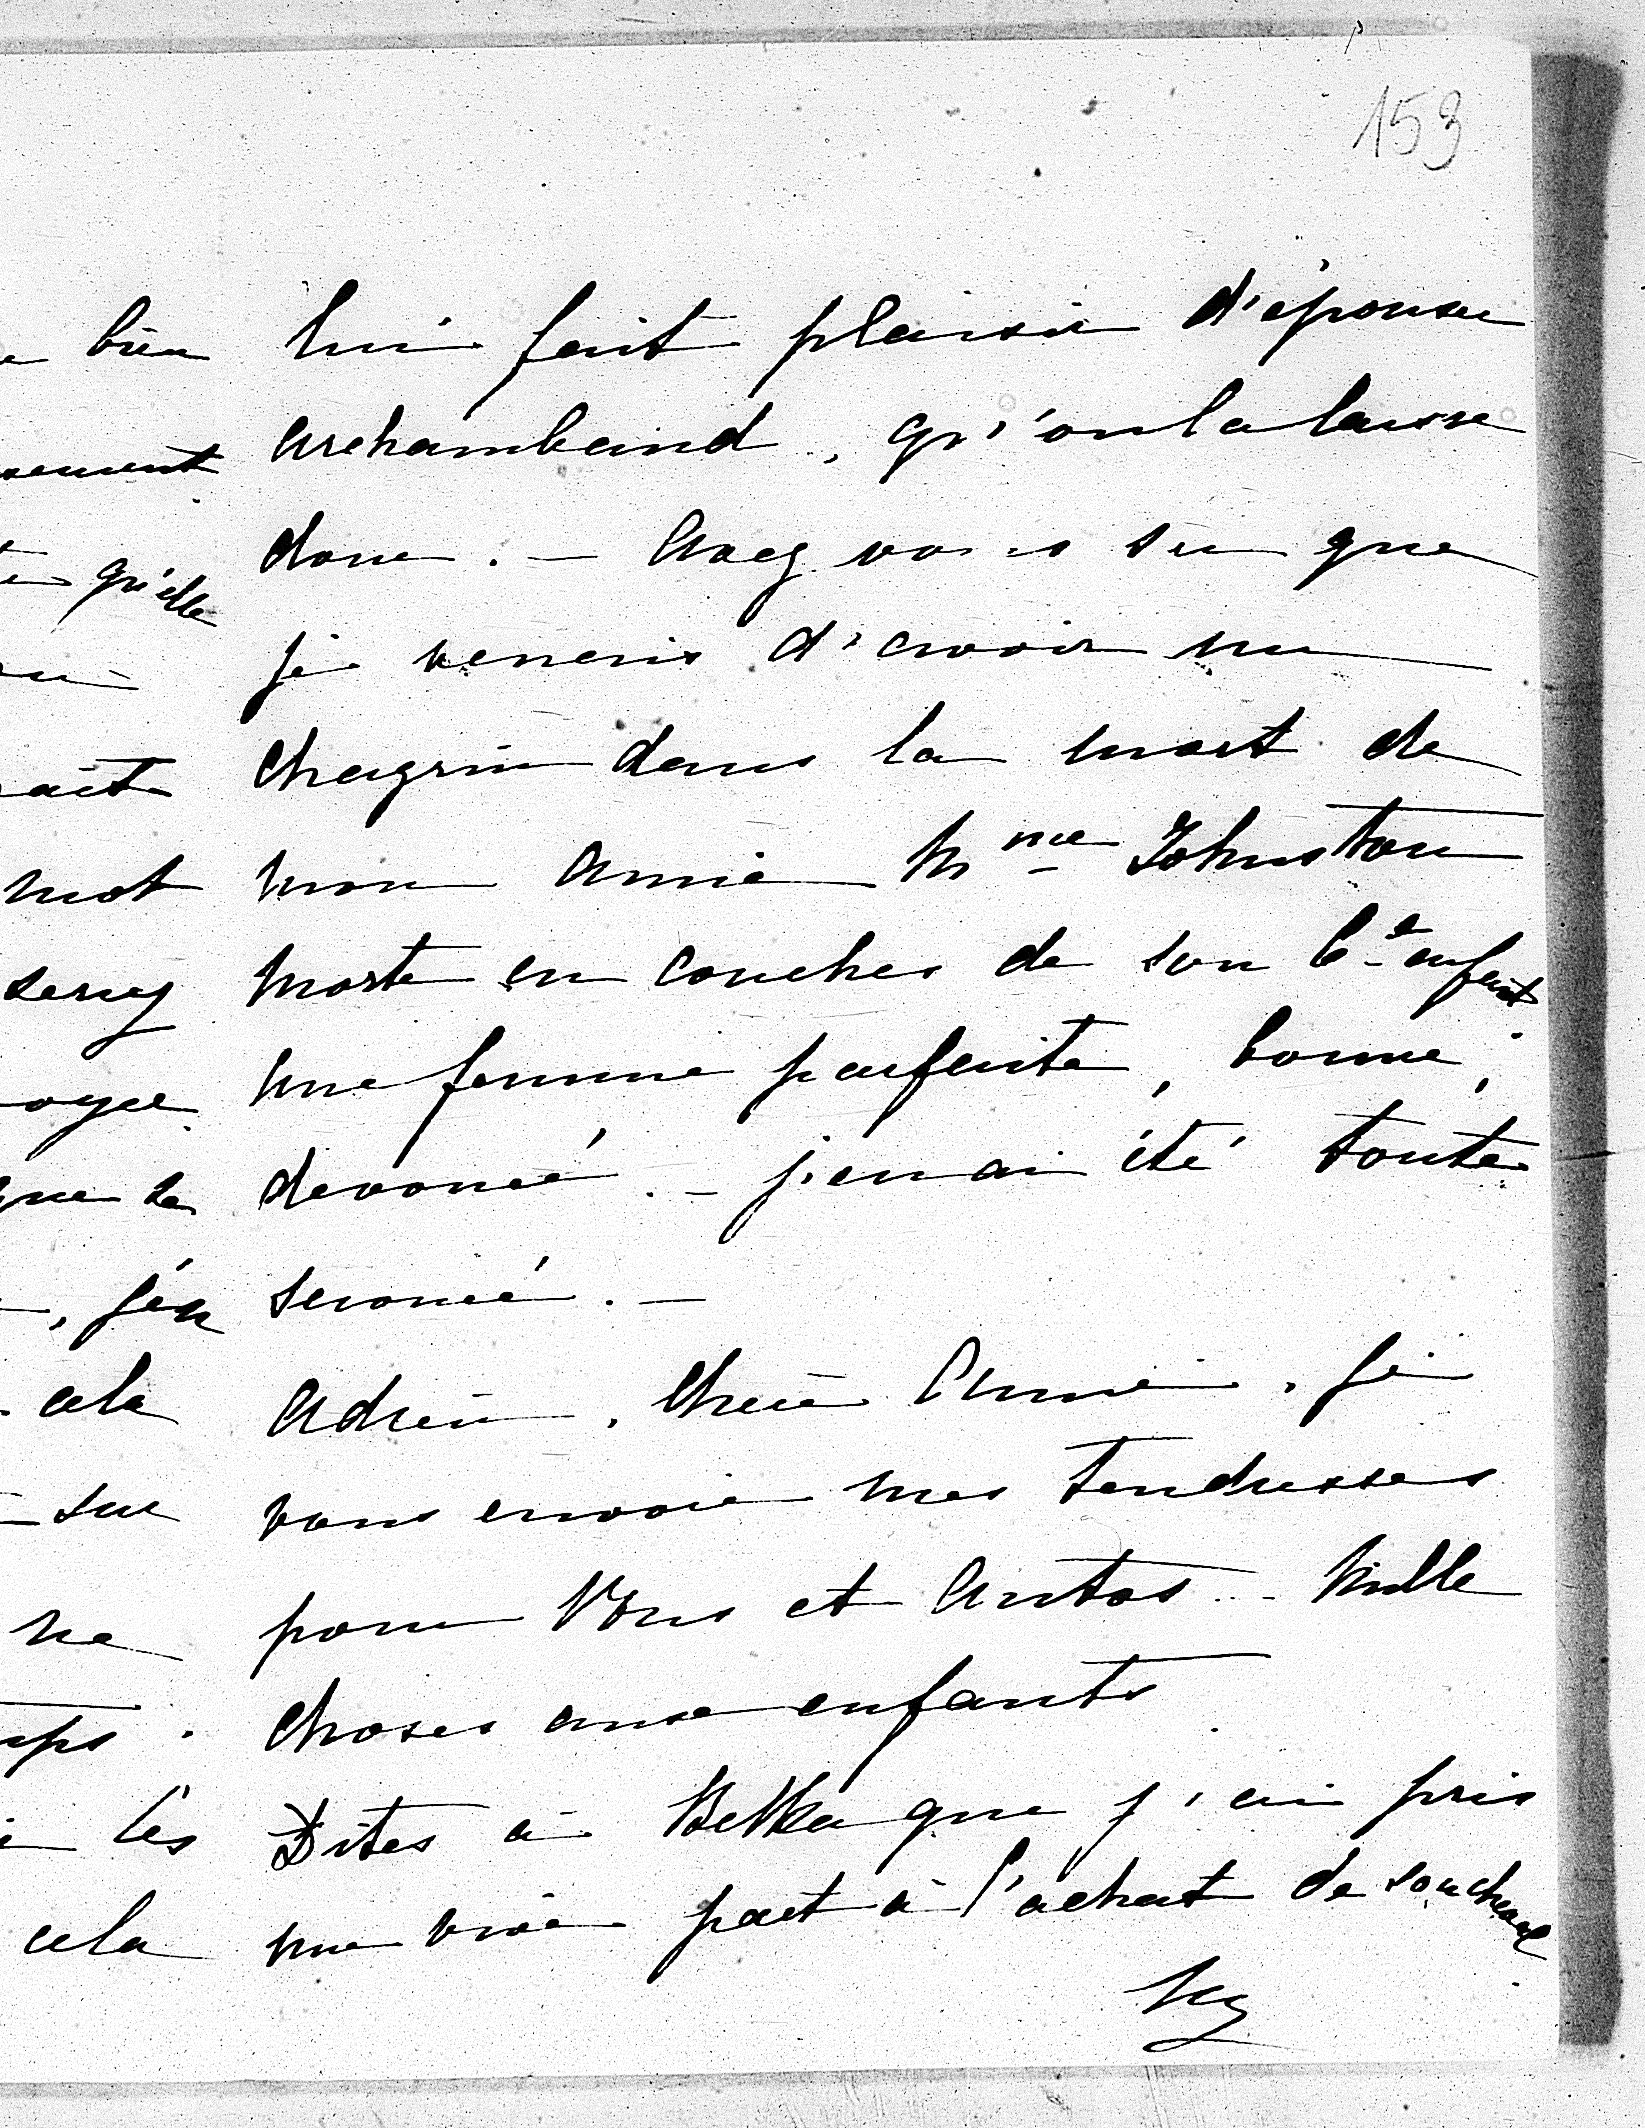 153
lui fait plaisir d'épouser
archambaud, qu'on la laisse
donc. — Avez vous su que
je venais d'avoir un
chagrin dans la mort de
mon amie Mme Johnston
morte en couches de son 6e enfant
une femme parfaite, bonne,
devouée. — j'en ai été toute
secouée. —
Adieu, Chère Amie, je
vous envoie mes tendresses
pour Vous et Antos. - Mille
choses aux enfants
Dites à Betka que j'ai pris
une vive part à l'achat de son cheval
bien
sement
qu'elle
mot
serez
que se
, j'en
cela
sur
ne
les
cela